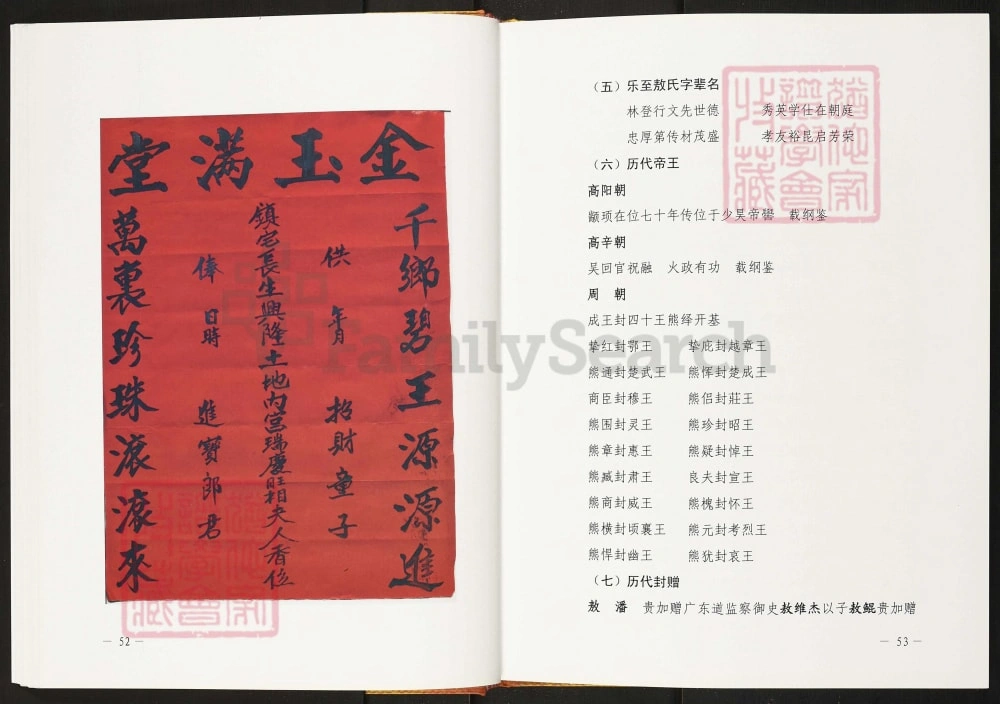 金玉满堂
千鄉碧王源源進
供 年月 招財童子
鎮宅長生興隆土地內宫瑞慶旺相夫人香位
俸 日時 進寳郎君
萬裏珍珠滾滾來
— 52 —
（五）乐至敖氏字辈名
林登行文先世德 秀英学仕在朝庭
忠厚第传材茂盛 孝友裕昆启芳荣
（六）历代帝王
高阳朝
颛顼在位七十年传位于少昊帝喾 载纲鉴
高辛朝
吴回官祝融 火政有功 载纲鉴
周 朝
成王封四十王熊绎开基
挚红封鄂王 挚庇封越章王
熊通封楚武王 熊恽封楚成王
商臣封穆王 熊侣封莊王
熊围封灵王 熊珍封昭王
熊章封惠王 熊疑封悼王
熊臧封肃王 良夫封宣王
熊商封威王 熊槐封怀王
熊横封顷襄王 熊元封考烈王
熊悍封幽王 熊犹封哀王
（七）历代封赠
敖 潘 贵加赠广东道监察御史敖维杰以子敖鲲贵加赠
— 53 —
FamilySearch